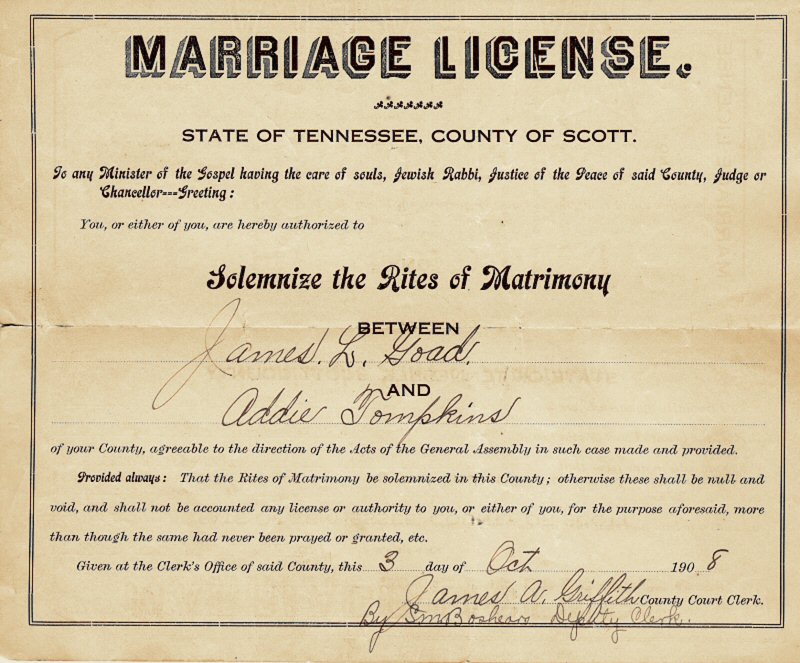 MARRIAGE LICENSE.
STATE OF TENNESSEE, COUNTY OF SCOTT.
To any Minister of the Gospel having the care of souls, Jewish Rabbi, Justice of the Peace of said County, Judge or
Chancellor---Greeting:
You, or either of you, are hereby authorized to
Solemnize the Rites of Matrimony
BETWEEN
James. L. Goad.
AND
Addie Tompkins
of your County, agreeable to the direction of the Acts of the General Assembly in such case made and provided.
Provided always: That the Rites of Matrimony be solemnized in this County; otherwise these shall be null and
void, and shall not be accounted any license or authority to you, or either of you, for the purpose aforesaid, more
than though the same had never been prayed or granted, etc.
Given at the Clerk's Office of said County, this 3 day of Oct 1908
James A. Griffith County Court Clerk.
By Boshears Deputy Clerk.